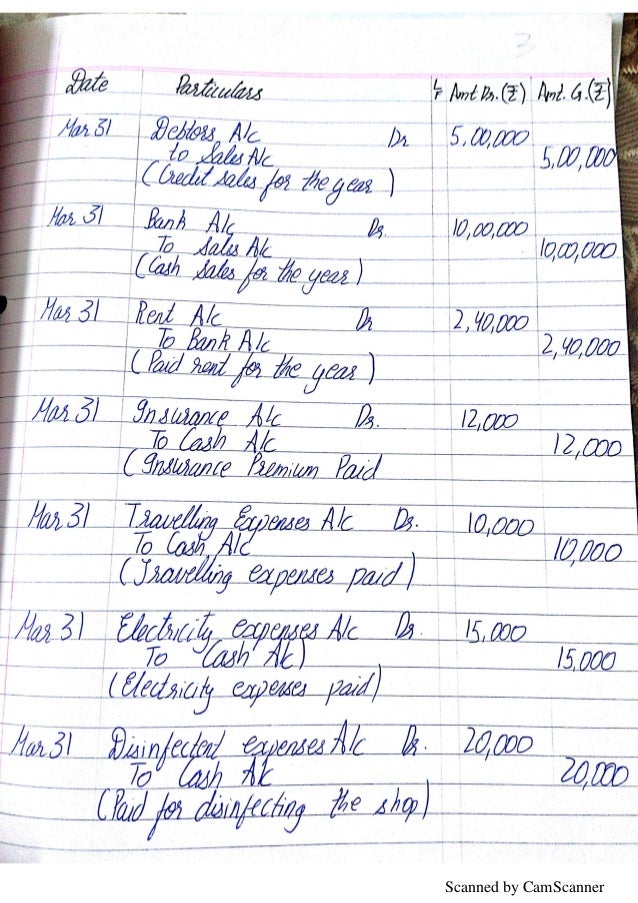 3
Date Particulars L F Amt Dr. (₹) Amt. Cr. (₹)
Mar 31 Debtors A/c Dr 5,00,000
to Sales A/c 5,00,000
(Credit sales for the year)
Mar 31 Bank A/c Dr. 10,00,000
To Sales A/c 10,00,000
(Cash sales for the year)
Mar 31 Rent A/c Dr 2,40,000
To Bank A/c 2,40,000
(Paid rent for the year)
Mar 31 Insurance A/c Dr. 12,000
To Cash A/c 12,000
(Insurance Premium Paid
Mar 31 Travelling Expenses A/c Dr. 10,000
To Cash A/c 10,000
(Travelling expenses paid)
Mar 31 Electricity expenses A/c Dr. 15,000
To Cash A/c) 15,000
(Electricity expenses paid)
Mar 31 Disinfectent expenses A/c Dr. 20,000
To Cash A/c 20,000
(Paid for disinfecting the shop)
Scanned by CamScanner